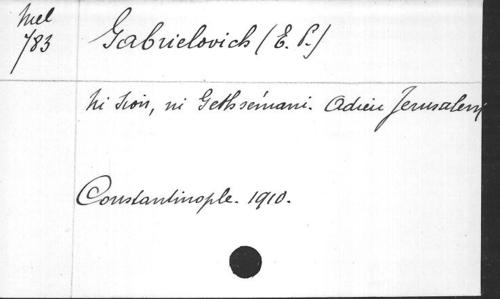 Mel
783
Gabrielovich (E. P.)
Ni Sion, ni Gethsémani. Adieu Jerusalem
Constantinople. 1910.